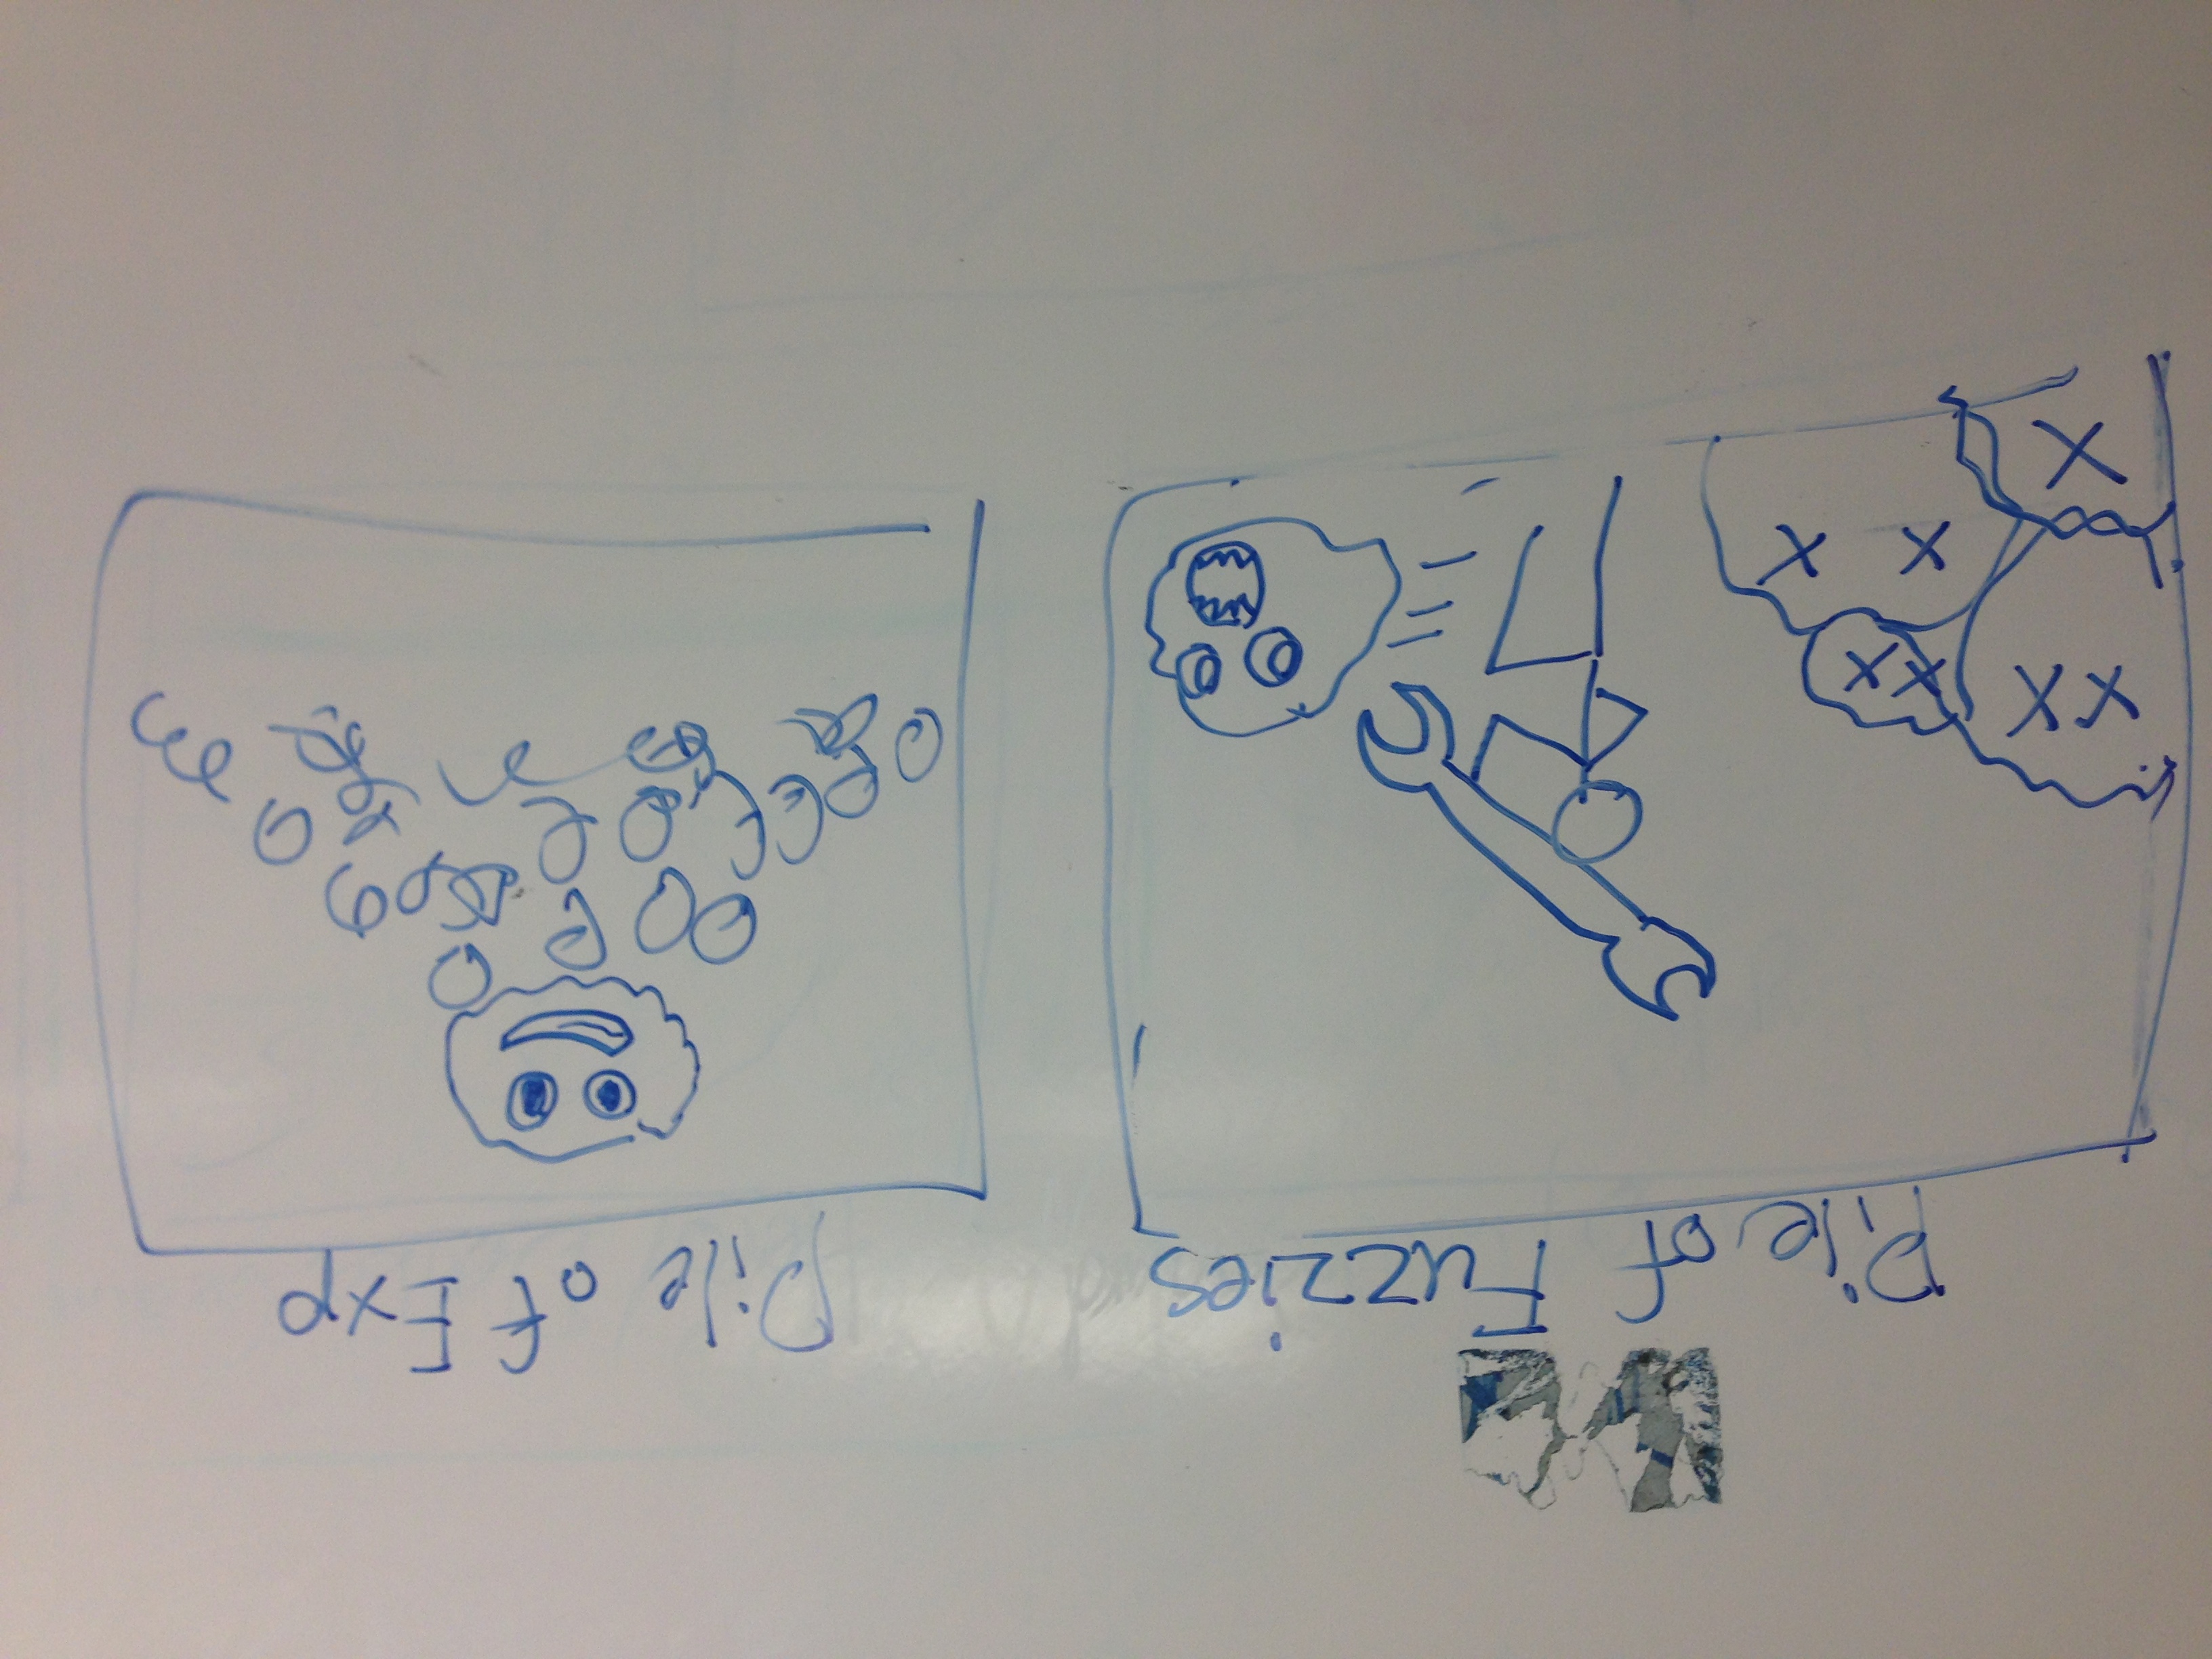 Pile of Fuzzies
Pile of Exp